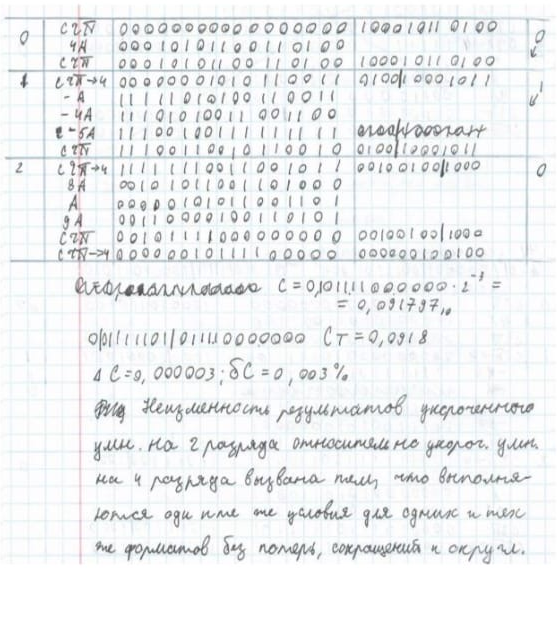 0 СЧП 0000000000000000 10001011 0100 0
4А 0001010110011 0100
СЧП 0001010110011 0100 10001011 0100
1 СЧП→4 0000000101011 0011 0100|10001011 1
-А 1111101010011 0011
-4А 1110101001 1001100
-5А
СЧП 0100|10001011
2 СЧП→4 00100100|1000 0
8А 0010101100110 1000
А
9А 0011000010011 0101
СЧП 0010111100000000 00100100|1000
СЧП→4 000000101111 00000 000000100100
C = 0,101111000000 · 2⁻³ =
= 0,091797₁₀
0|01111101|01111000000 Cт = 0,0918
Δ C = 0,000003; δC = 0,003%
Неизменность результатов укороченного
умн. на 2 разряда относительно укороч. умн.
на 4 разряда вызвана тем, что выполня-
ются одни и те же условия для одних и тех
же форматов без потерь, сокращений и округл.